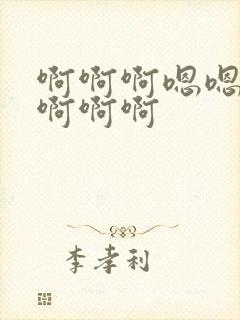 啊啊啊嗯嗯
啊啊啊
李孝利